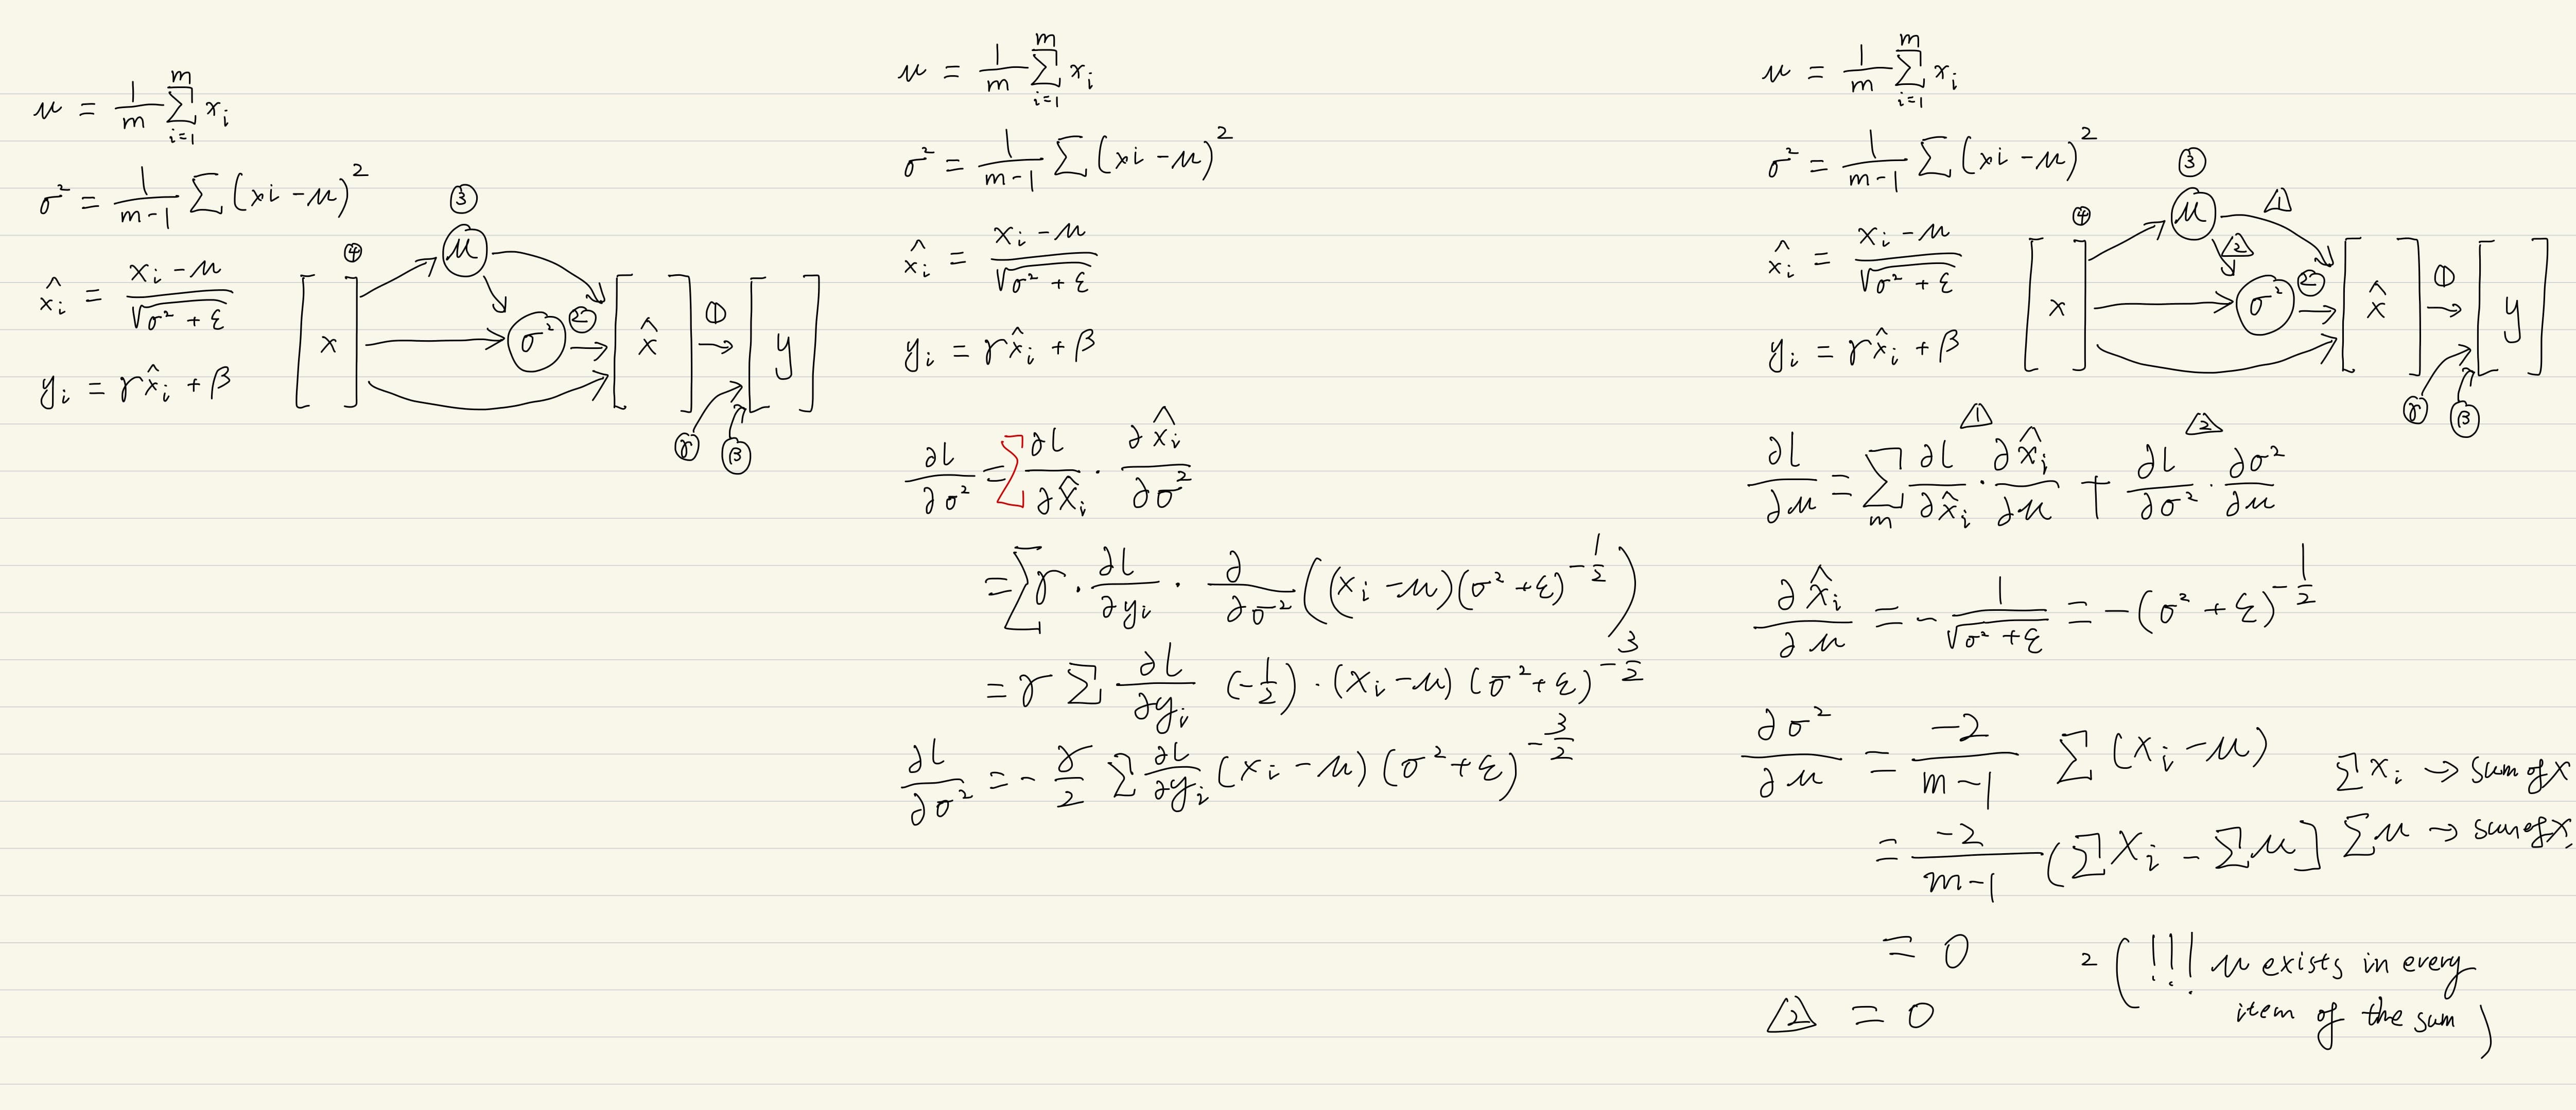 μ = 1/m Σ_{i=1}^{m} x_i
σ² = 1/(m-1) Σ (xi - μ)²
x̂_i = (x_i - μ)/√(σ² + ε)
y_i = γx̂_i + β
③
④
μ
x
σ²
②
x̂
①
y
γ
β
μ = 1/m Σ_{i=1}^{m} x_i
σ² = 1/(m-1) Σ (xi - μ)²
x̂_i = (x_i - μ)/√(σ² + ε)
y_i = γx̂_i + β
∂l/∂σ² = Σ ∂l/∂x̂_i · ∂x̂_i/∂σ²
= Σ γ · ∂l/∂y_i · ∂/∂σ² ((x_i - μ)(σ² + ε)^{-1/2})
= γ Σ ∂l/∂y_i (-1/2) · (x_i - μ) (σ² + ε)^{-3/2}
∂l/∂σ² = - γ/2 Σ ∂l/∂y_i (x_i - μ) (σ² + ε)^{-3/2}
μ = 1/m Σ_{i=1}^{m} x_i
σ² = 1/(m-1) Σ (xi - μ)²
x̂_i = (x_i - μ)/√(σ² + ε)
y_i = γx̂_i + β
③
④
μ
△1
△2
x
σ²
②
x̂
①
y
γ
β
△1 △2
∂l/∂μ = Σ_m ∂l/∂x̂_i · ∂x̂_i/∂μ + ∂l/∂σ² · ∂σ²/∂μ
∂x̂_i/∂μ = - 1/√(σ² + ε) = -(σ² + ε)^{-1/2}
∂σ²/∂μ = -2/(m-1) Σ (x_i - μ)
Σx_i → sum of x
= -2/(m-1) (Σx_i - Σμ]
Σμ → sum of x
= 0
2 (!!! μ exists in every
item of the sum)
△2 = 0